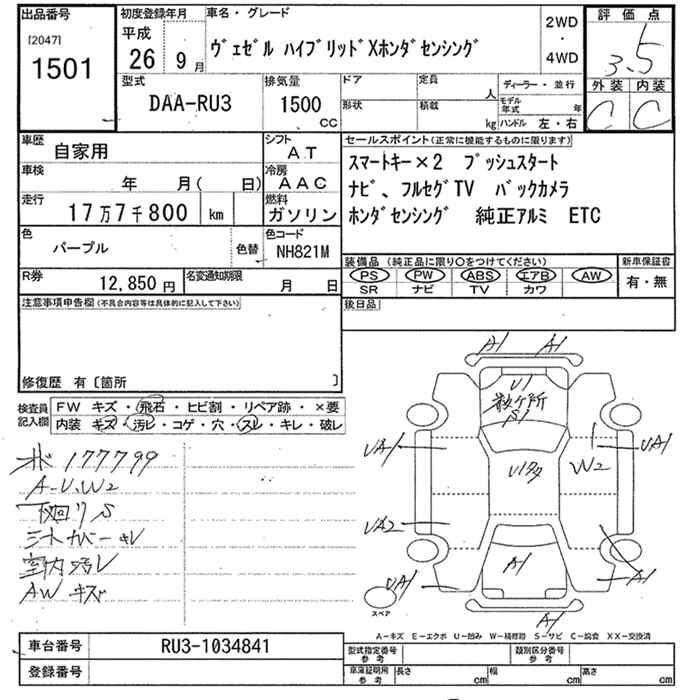 出品番号
[2047]
1501
初度登録年月
平成
26 9 月
車名・グレード
ヴェゼル ハイブリッドXホンダセンシング
2WD
・
4WD
評価点
3.5
外装 内装
C C
型式
DAA-RU3
排気量
1500
CC
ドア
形状
定員
人
積載
kg
ディーラー・並行
モデル年式 年
ハンドル 左・右
車歴
自家用
シフト
AT
車検
年 月( 日)
冷房
AAC
走行
17万7千800 km
燃料
ガソリン
色
パープル
色替
色コード
NH821M
R券
12,850円
名変通知期限
月 日
セールスポイント(正常に機能するものに限ります)
スマートキー×2 プッシュスタート
ナビ、フルセグTV バックカメラ
ホンダセンシング 純正アルミ ETC
装備品(純正品に限り○をつけてください)
PS PW ABS エアB AW
SR ナビ TV カワ
新車保証書
有・無
後日品
注意事項申告欄(不具合内容等は具体的に記入して下さい)
修復歴 有〔箇所 〕
検査員
記入欄
FW キズ・飛石・ヒビ割・リペア跡・×要
内装 キズ・汚レ・コゲ・穴・スレ・キレ・破レ
177799
A-U.W2
下回りS
シートカバーキレ
室内汚レ
AWキズ
A1 A1
U1
数ヶ所
S1
UA1
UA1
W2
U1多
UA2
A1
A1
UA1
A1
スペア
A-キズ E-エクボ U-凹み W-補修跡 S-サビ C-腐食 XX-交換済
車台番号
RU3-1034841
登録番号
型式指定番号
参考
類別区分番号
参考
車庫証明用
参考
長さ cm
幅 cm
高さ cm